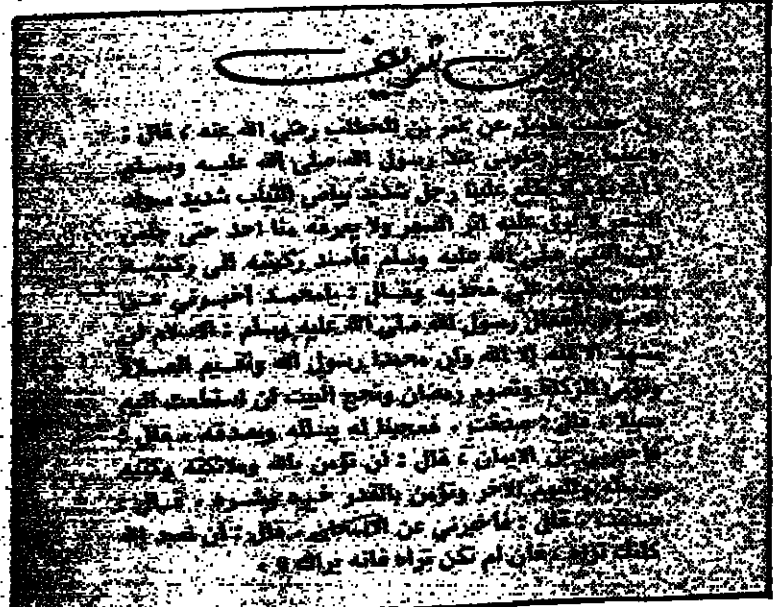 حديث شريف
عن عمر بن الخطاب رضي الله عنه ، قال :
جلوس عند رسول الله صلى الله عليه وسلم
طلع علينا رجل شديد بياض الثياب شديد سواد
الشعر لا يرى عليه اثر السفر ولا يعرفه منا احد حتى جلس
الى النبي صلى الله عليه وسلم فأسند ركبتيه الى ركبتيه
على فخذيه وقال : يا محمد اخبرني عن
الاسلام فقال رسول الله صلى الله عليه وسلم : الاسلام ان
تشهد الا اله إلا الله وان محمدا رسول الله وتقيم الصلاة
وتؤتي الزكاة وتصوم رمضان وتحج البيت ان استطعت اليه
سبيلا ، قال : صدقت ، فعجبنا له يسأله ويصدقه ، قال :
فأخبرني عن الايمان ، قال : ان تؤمن بالله وملائكته وكتبه
ورسله واليوم الآخر وتؤمن بالقدر خيره وشره ، قال :
صدقت ، قال : فأخبرني عن الاحسان ، قال : أن تعبد الله
كأنك تراه ، فان لم تكن تراه فانه يراك » .